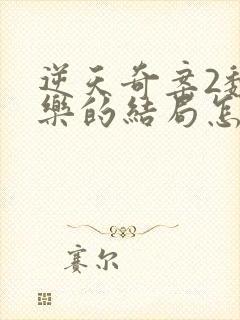 逆天奇案2
樂的結局怎
賽尔